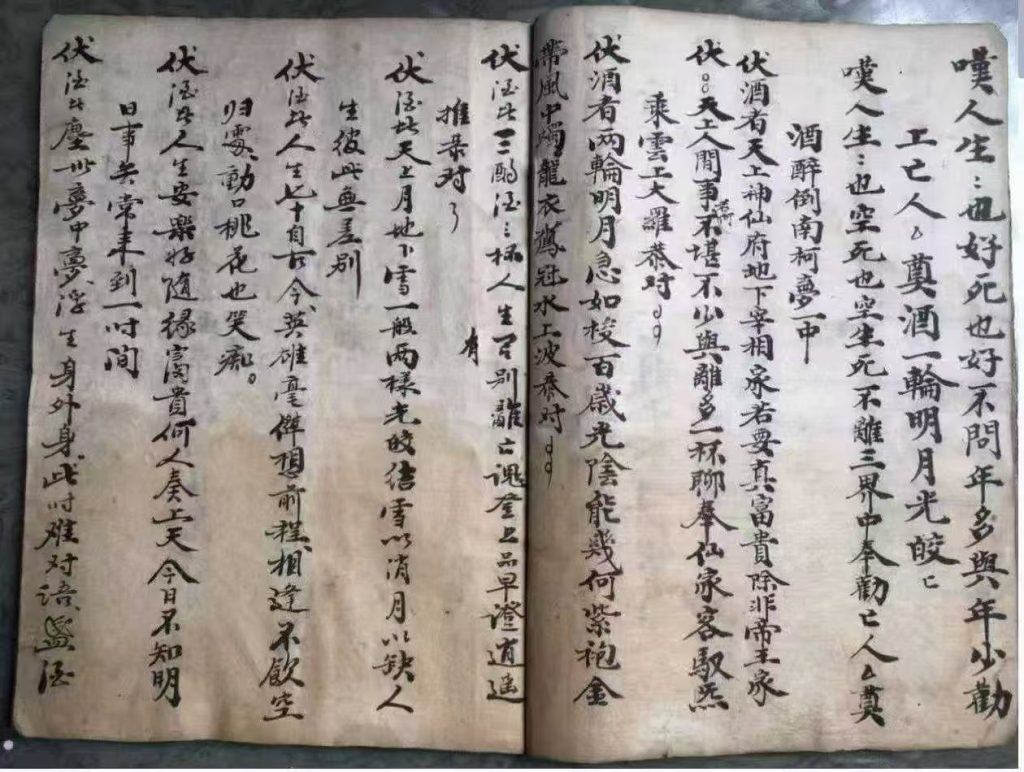 嘆人生〻也好死也好不問年多與年少勸
工亡人厶奠酒一輪明月光皎匕
嘆人生〻也空死也空生死不離三界中奉勸亡人厶奠
酒醉倒南柯夢一中
伏酒者天上神仙府地下宰相家若要真富貴除非帝王家
伏天工人間事不堪不少與離多一杯聊奉仙家客馭炁
乘雲工大羅恭对
伏酒者两輪明月急如梭百歲光陰能幾何紫袍金
帶風中燭龍衣鳳冠水工波恭对
伏酒此三酌酒〻杯人生有别離亡魂登上品早證逍遥
推恭对
伏酒此天上月地下雪一般两樣光皎洁雪以消月以缺人
生彼此無差别
伏酒此人生七十自古今英雄毫傑想前程相逢不飲空
归去洞口桃花也笑痴。
伏酒此人生安樂好隨緣富貴何人奏上天今日不知明
日事无常来到一时间
伏酒此塵世夢中夢浮生身外身此时难对語盥酒